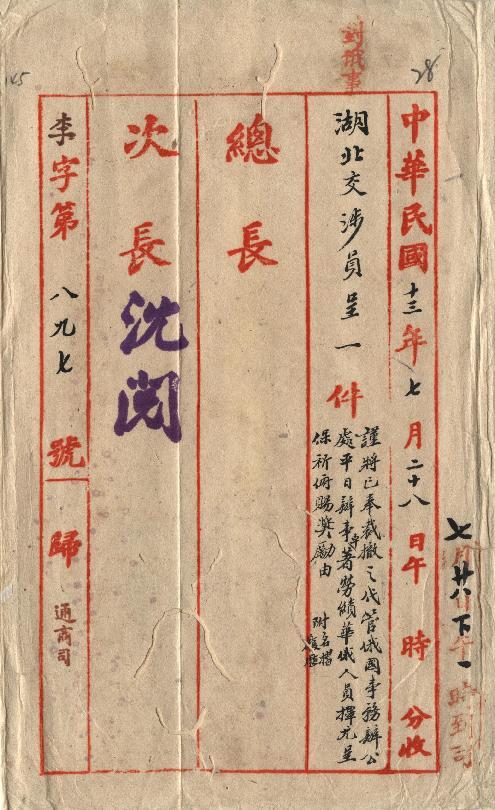 對俄事
28
中華民國十三年七月二十八日午 時 分收
七月廿八日下午一時到司
湖北交涉員呈一件
謹將已奉裁撤之代管俄國事務辦公
處平日辦事專著勞績華俄人員擇尤呈
保祈俯賜獎勵由
附名摺
履歷
總長
次長
沈閱
李字第八九七號歸通商司